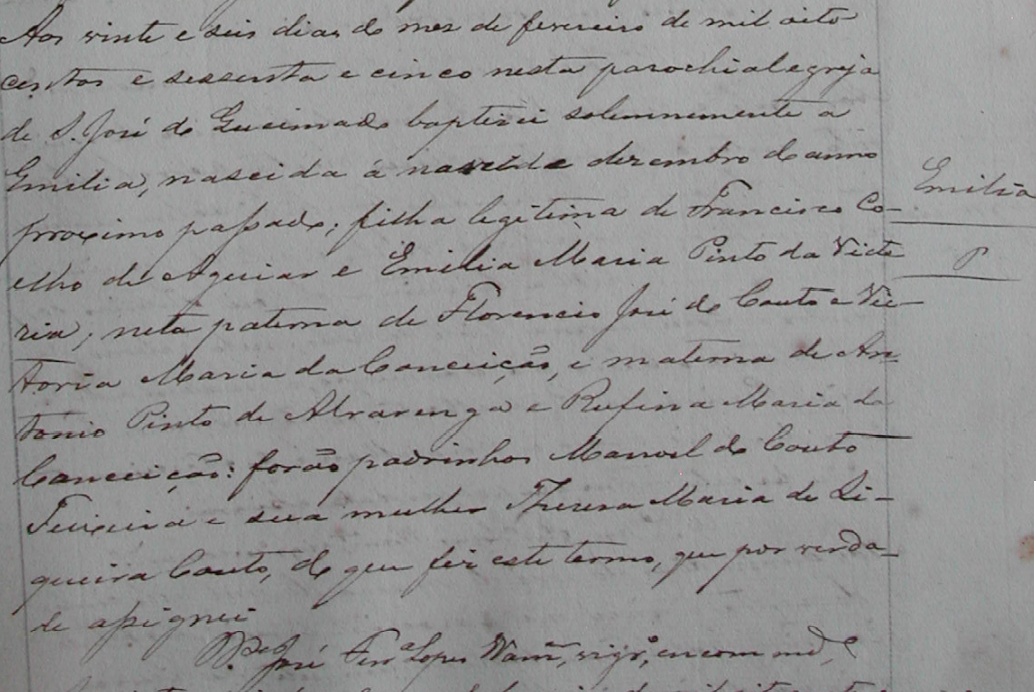 Aos vinte e seis dias do mez de fevereiro de mil oito
centos e sessenta e cinco nesta parochial egreja
de S. José do Queimado baptizei solemnemente a
Emilia, nascida á nove de dezembro do anno
proximo passado; filha legitima de Francisco Co-
elho de Aguiar e Emilia Maria Pinto da Victo
ria; neta paterna de Florencio José do Couto e Vic-
toria Maria da Conceição, e materna de An-
tonio Pinto de Alvarenga e Rufina Maria da
Conceição: forão padrinhos Manoel do Couto
Teixeira e sua mulher Thereza Maria de Si-
queira Couto, do que fiz este termo, que por verda-
de assignei
José Lopes vigrº, encommdº
Emilia